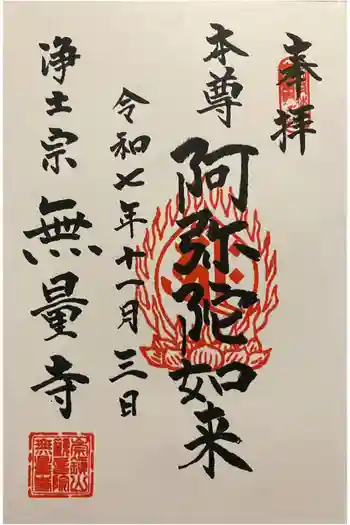 奉拝
本尊
阿弥陀如来
令和七年十一月三日
浄土宗
無量寺